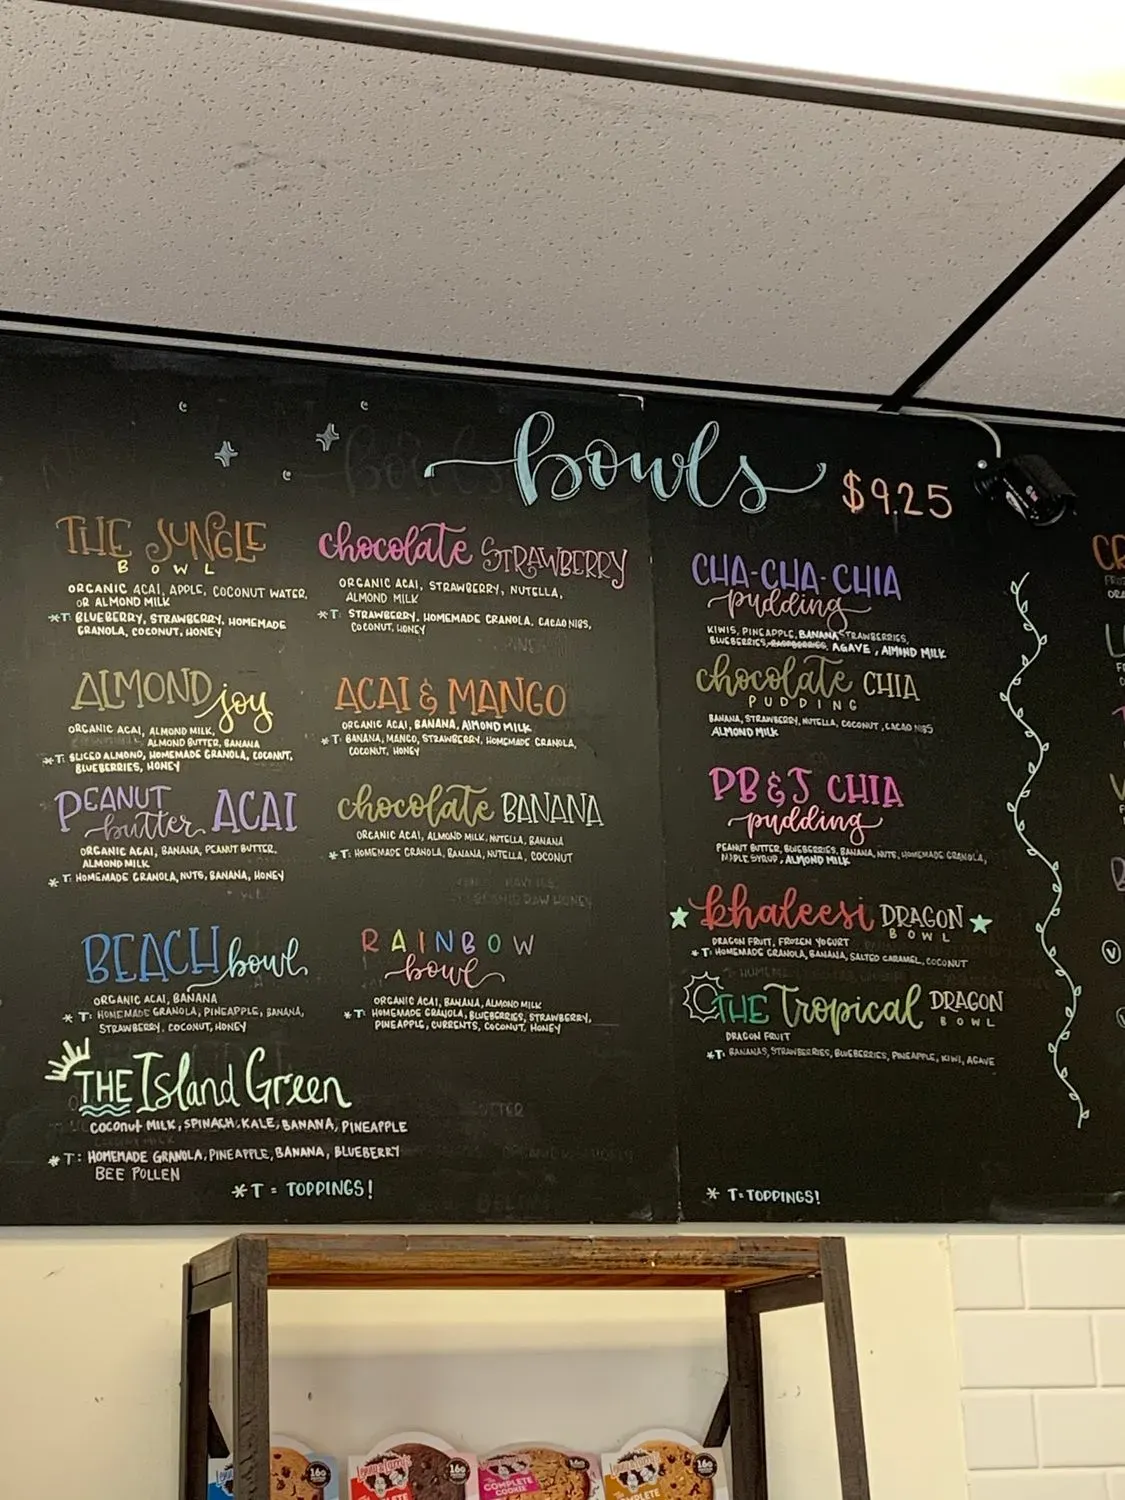 bowls $9.25
THE JUNGLE
BOWL
ORGANIC ACAI, APPLE, COCONUT WATER,
OR ALMOND MILK
*T: BLUEBERRY, STRAWBERRY, HOMEMADE
GRANOLA, COCONUT, HONEY
ALMOND joy
ORGANIC ACAI, ALMOND MILK,
ALMOND BUTTER, BANANA
*T: SLICED ALMOND, HOMEMADE GRANOLA, COCONUT,
BLUEBERRIES, HONEY
PEANUT
butter ACAI
ORGANIC ACAI, BANANA, PEANUT BUTTER,
ALMOND MILK
*T: HOMEMADE GRANOLA, NUTS, BANANA, HONEY
BEACH bowl
ORGANIC ACAI, BANANA
*T: HOMEMADE GRANOLA, PINEAPPLE, BANANA,
STRAWBERRY, COCONUT, HONEY
THE Island Green
COCONUT MILK, SPINACH, KALE, BANANA, PINEAPPLE
*T: HOMEMADE GRANOLA, PINEAPPLE, BANANA, BLUEBERRY
BEE POLLEN
*T = TOPPINGS!
chocolate STRAWBERRY
ORGANIC ACAI, STRAWBERRY, NUTELLA,
ALMOND MILK
*T: STRAWBERRY, HOMEMADE GRANOLA, CACAO NIBS,
COCONUT, HONEY
ACAI & MANGO
ORGANIC ACAI, BANANA, AlMOND MILK
*T: BANANA, MANGO, STRAWBERRY, HOMEMADE GRANOLA,
COCONUT, HONEY
chocolate BANANA
ORGANIC ACAI, ALMOND MILK, NUTELLA, BANANA
*T: HOMEMADE GRANOLA, BANANA, NUTELLA, COCONUT
RAINBOW
bowl
ORGANIC ACAI, BANANA, ALMOND MILK
*T: HOMEMADE GRANOLA, BLUEBERRIES, STRAWBERRY,
PINEAPPLE, CURRENTS, COCONUT, HONEY
CHA-CHA-CHIA
pudding
KIWIS, PINEAPPLE, BANANA STRAWBERRIES,
BLUEBERRIES, RASPBERRIES, AGAVE, AlMOND MILK
chocolate CHIA
PUDDING
BANANA, STRAWBERRY, NUTELLA, COCONUT, CACAO NIBS
ALMOND MILK
PB & J CHIA
pudding
PEANUT BUTTER, BLUEBERRIES, BANANA, NUTS, HOMEMADE GRANOLA,
MAPLE SYRUP, ALMOND MILK
khaleesi DRAGON
BOWL
DRAGON FRUIT, FROZEN YOGURT
*T: HOMEMADE GRANOLA, BANANA, SALTED CARAMEL, COCONUT
THE Tropical DRAGON
BOWL
DRAGON FRUIT
*T: BANANAS, STRAWBERRIES, BLUEBERRIES, PINEAPPLE, KIWI, AGAVE
* T=TOPPINGS!
CR
V
COMPLETE
COOKIE
16g
16g
16g